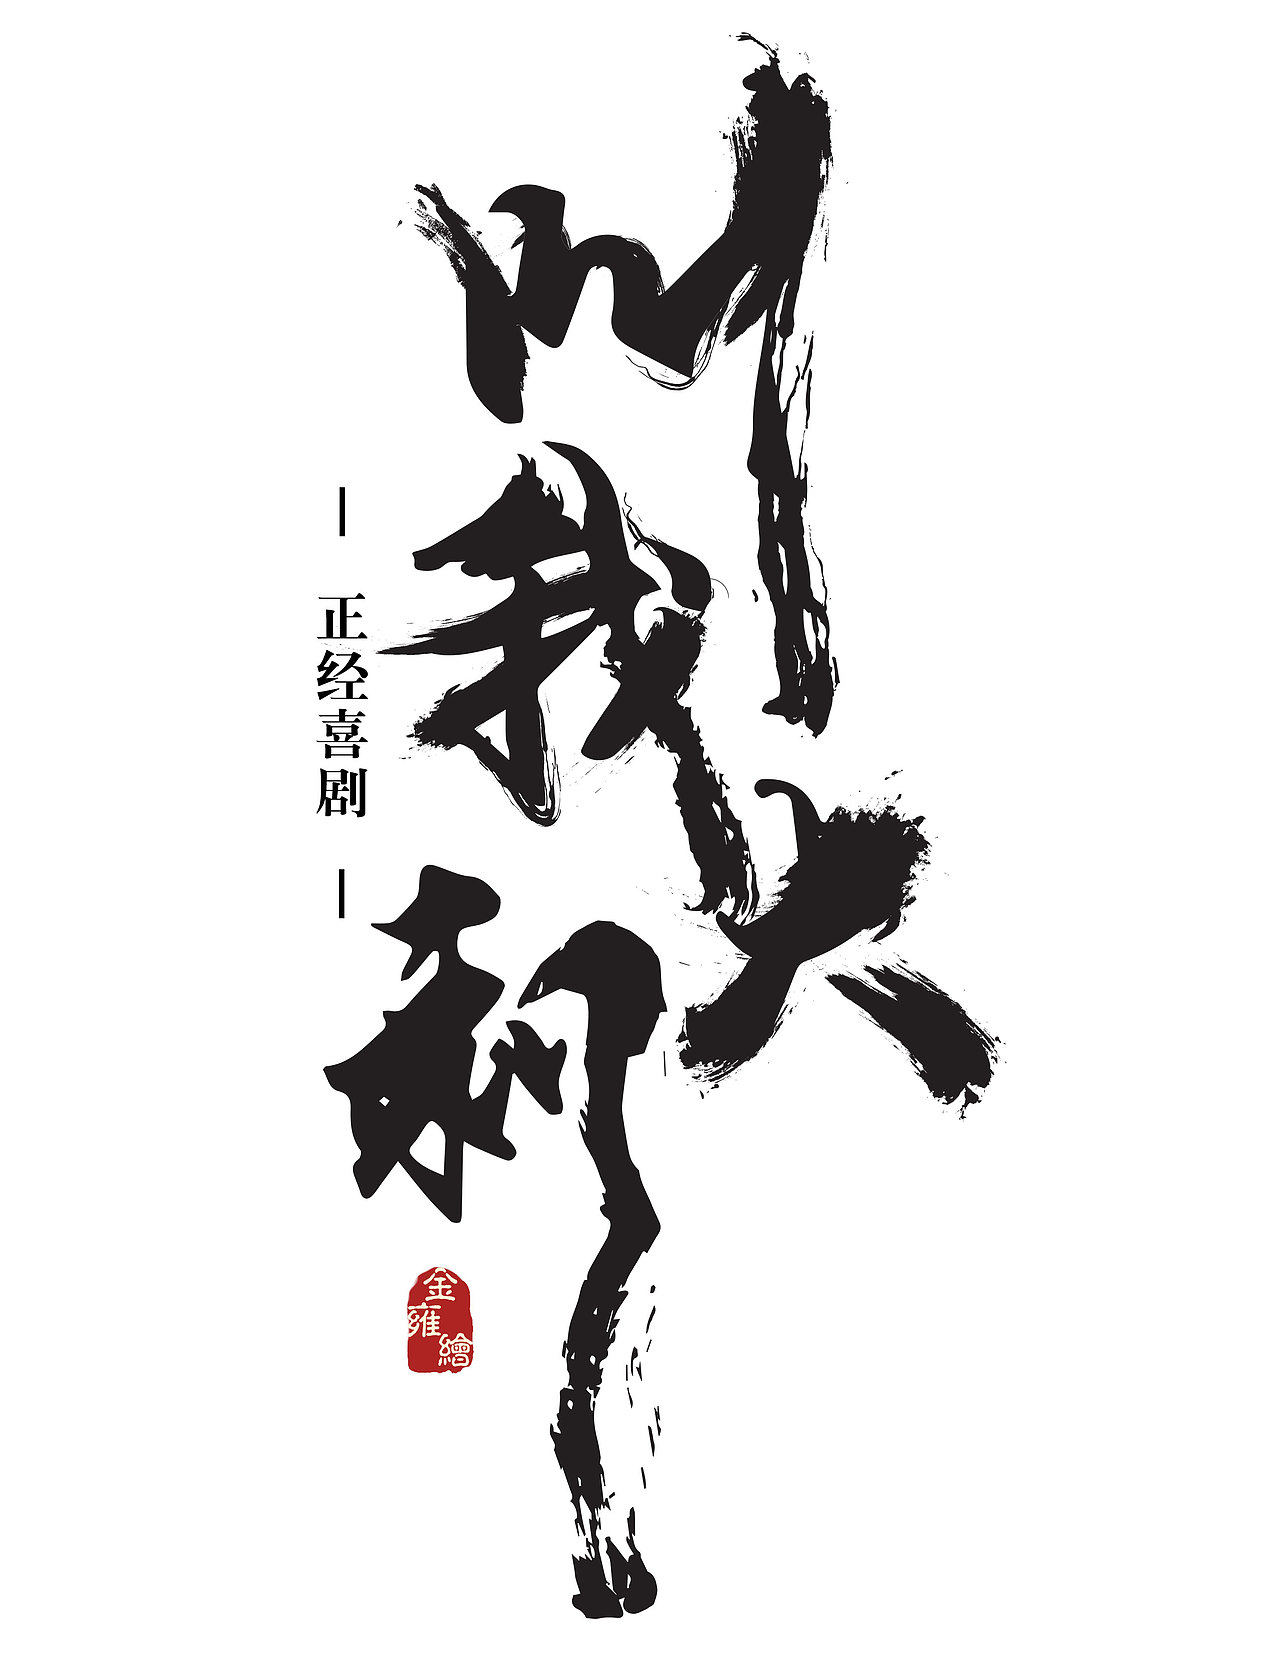 叫我大郎
正经喜剧
金雍繪